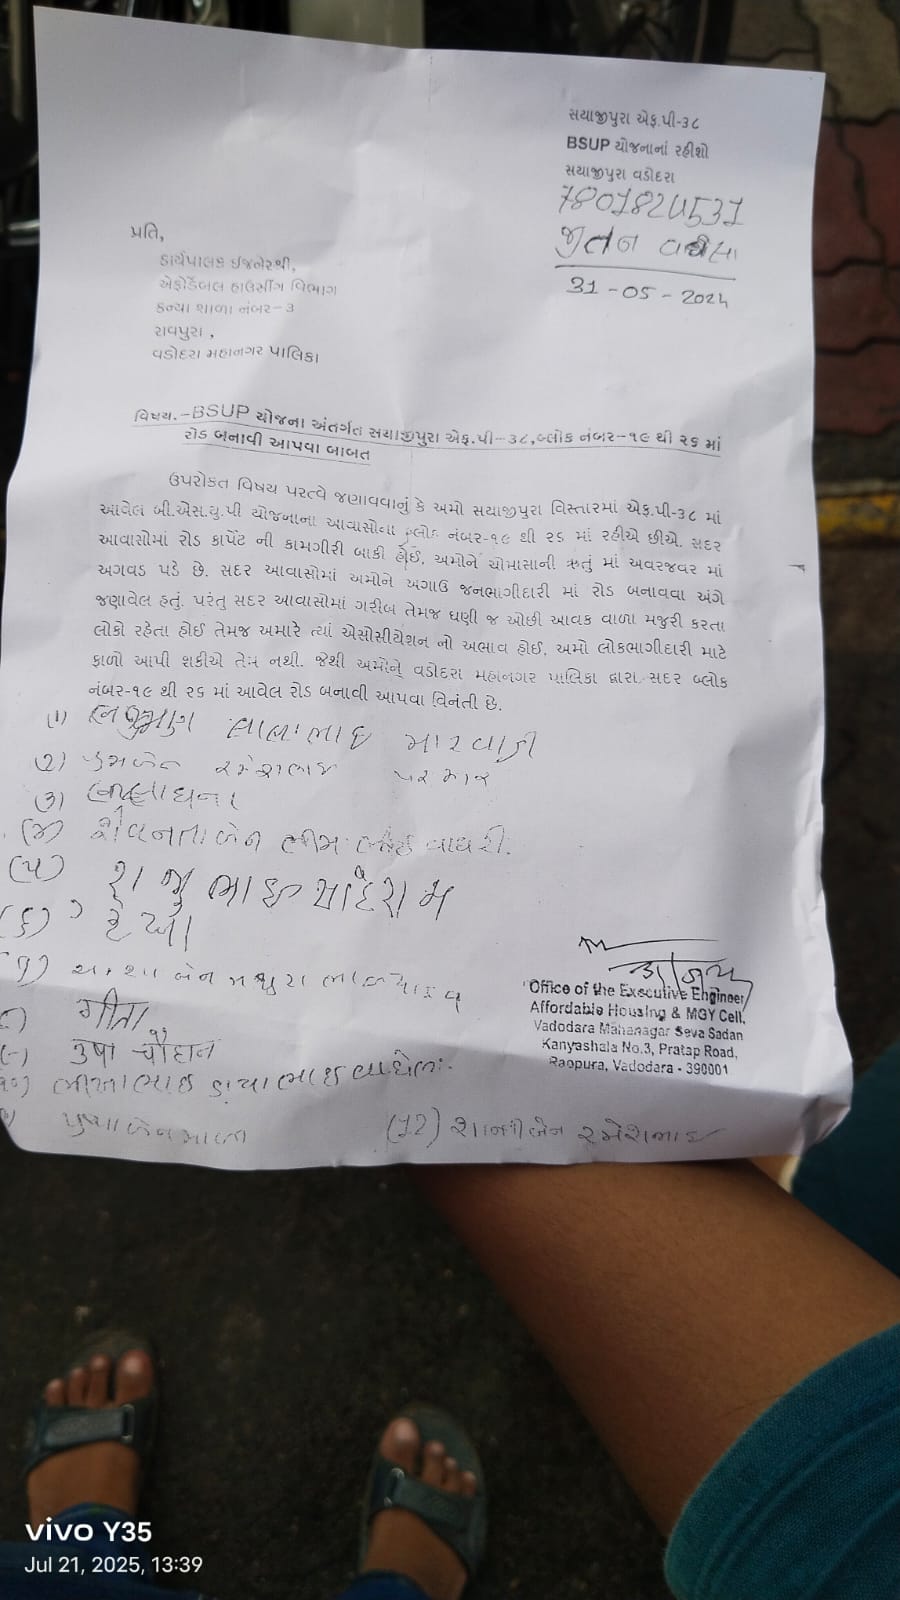 સયાજીપુરા એફ.પી-૩૮
BSUP યોજનાનાં રહીશો
સયાજીપુરા વડોદરા
જીતન
31-05-2024
પ્રતિ,
કાર્યપાલક ઇજનેરશ્રી,
એફોર્ડેબલ હાઉસીંગ વિભાગ
કન્યા શાળા નંબર-3
રાવપુરા ,
વડોદરા મહાનગર પાલિકા
વિષય.-BSUP યોજના અંતર્ગત સયાજીપુરા એફ.પી-૩૮,બ્લોક નંબર-૧૯ થી ૨૬ માં
રોડ બનાવી આપવા બાબત
ઉપરોકત વિષય પરત્વે જણાવવાનું કે અમો સયાજીપુરા વિસ્તારમાં એફ.પી-૩૮ માં
આવેલ બી.એસ.યુ.પી યોજનાના આવાસોના બ્લોક નંબર-૧૯ થી ૨૬ માં રહીએ છીએ. સદર
આવાસોમાં રોડ કાર્પેટ ની કામગીરી બાકી હોઈ, અમોને ચોમાસાની ઋતું માં અવરજવર માં
અગવડ પડે છે. સદર આવાસોમાં અમોને અગાઉ જનભાગીદારી માં રોડ બનાવવા અંગે
જણાવેલ હતું. પરંતુ સદર આવાસોમાં ગરીબ તેમજ ઘણી જ ઓછી આવક વાળા મજુરી કરતા
લોકો રહેતા હોઈ તેમજ અમારે ત્યાં એસોસીયેશન નો અભાવ હોઈ, અમો લોકભાગીદારી માટે
ફાળો આપી શકીએ તેમ નથી. જેથી અમોને વડોદરા મહાનગર પાલિકા દ્વારા સદર બ્લોક
નંબર-૧૯ થી ૨૬ માં આવેલ રોડ બનાવી આપવા વિનંતી છે.
(૧) મારવાડી
૨) રમેશભાઇ પરમાર
૩)
(૪) શેવનતાબેન ભીમભાઈ વાઘરી.
(૫) રાજુભાઇ
(૬) રેખા
ગીતા
उषा चौहान
ડાયાભાઇ વાઘેલા
પુષ્પાબેન માળી
(12) શાન્તીબેન રમેશભાઇ
Office of the Executive Engineer
Affordable Housing & MGY Cell,
Vadodara Mahanagar Seva Sadan
Kanyashala No.3, Pratap Road,
Raopura, Vadodara - 390001
vivo Y35
Jul 21, 2025, 13:39